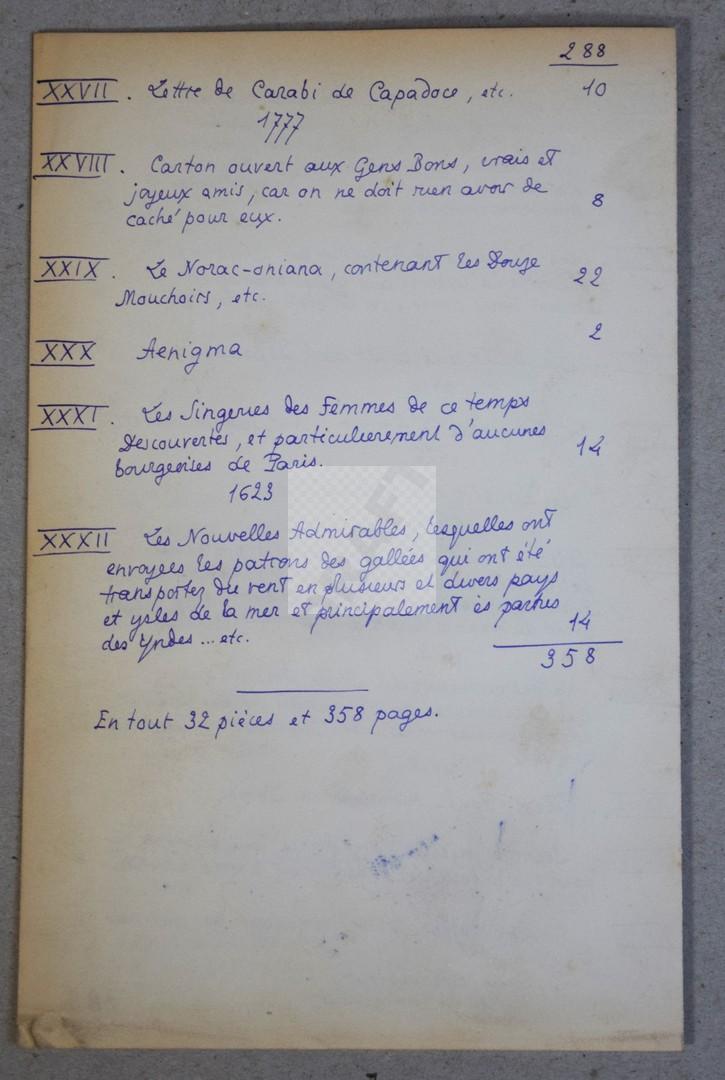 288
XXVII. Lettre de Carabi de Capadoce, etc. 10
1777
XXVIII. Carton ouvert aux Gens Bons, vrais et
joyeux amis, car on ne doit rien avoir de
caché pour eux. 8
XXIX. Le Norac-oniana, contenant les Douze
Mouchoirs, etc. 22
XXX Aenigma 2
XXXI. Les Singeries des Femmes de ce temps
Descouvertes, et particulierement d'aucunes
bourgeoises de Paris. 14
1623
XXXII Les Nouvelles Admirables, lesquelles ont
envoyees les patrons des gallées qui ont été
transportez du vent en plusieurs et divers pays
et ysles de la mer et principalement ès parties
des Yndes ... etc. 14
358
En tout 32 pièces et 358 pages.